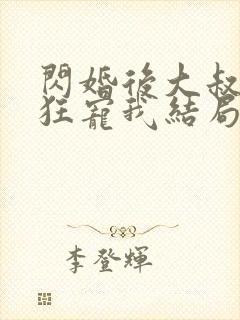 閃婚後大叔
狂寵我結局
李登輝